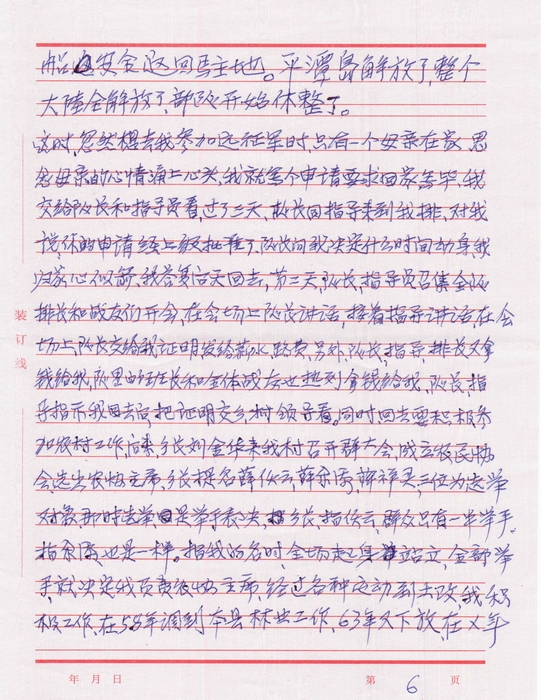 船安全返回驻地。平潭岛解放了,整个
大陆全解放了,部队开始休整了。
这时,忽然想去我参加远征军时,只有一个母亲在家,思
念母亲的心情涌上心头,我就写个申请要求回家写毕,我
交给队长和指导员看,过了三天,队长同指导来到我排,对我
说,你的申请经上级批准了,队长问我决定什么时间动身,我
归家心似箭,我答复后天回去,第三天,队长,指导员召集全队
排长和战友们开会,在会场上队长讲话,接着指导讲话,在会
场上,队长交给我证明发给薪水,路费,另外,队长,指导,排长又拿
钱给我,队里的班长和全体战友也热列拿钱给我,队长,指
导指示我回去后,把证明交乡村领导看。同时回去要积极参
加农村工作,后来,乡长刘金华来我村召开群大会,成立农民协
会,选出农协主席,乡长提名薛依云,薛祥灵三位为选举
对象,那时选举是举手表决,乡长,指依云,群众只有一半举手,
指也是一样。指我的名时,全场起身站立,全部举
手,就决定我负责农协主席,经过各种运动到土改,我积
极工作,在58年调到本县林业工作,63年又下放,在文革
装订线
年 月 日 第 6 页